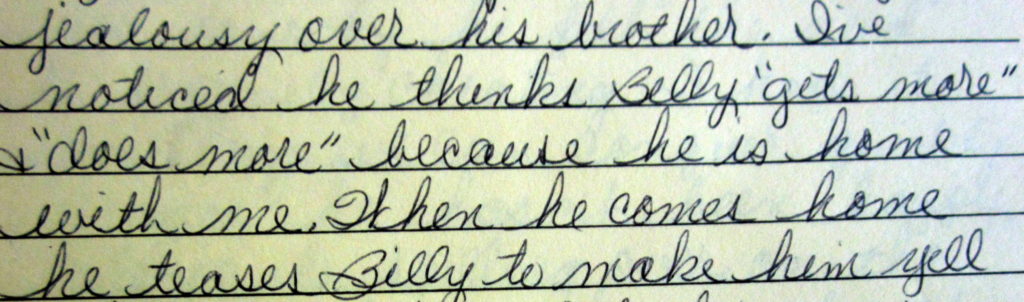 jealousy over his brother. I've
noticed he thinks Billy "gets more"
& "does more" because he is home
with me. When he comes home
he teases Billy to make him yell